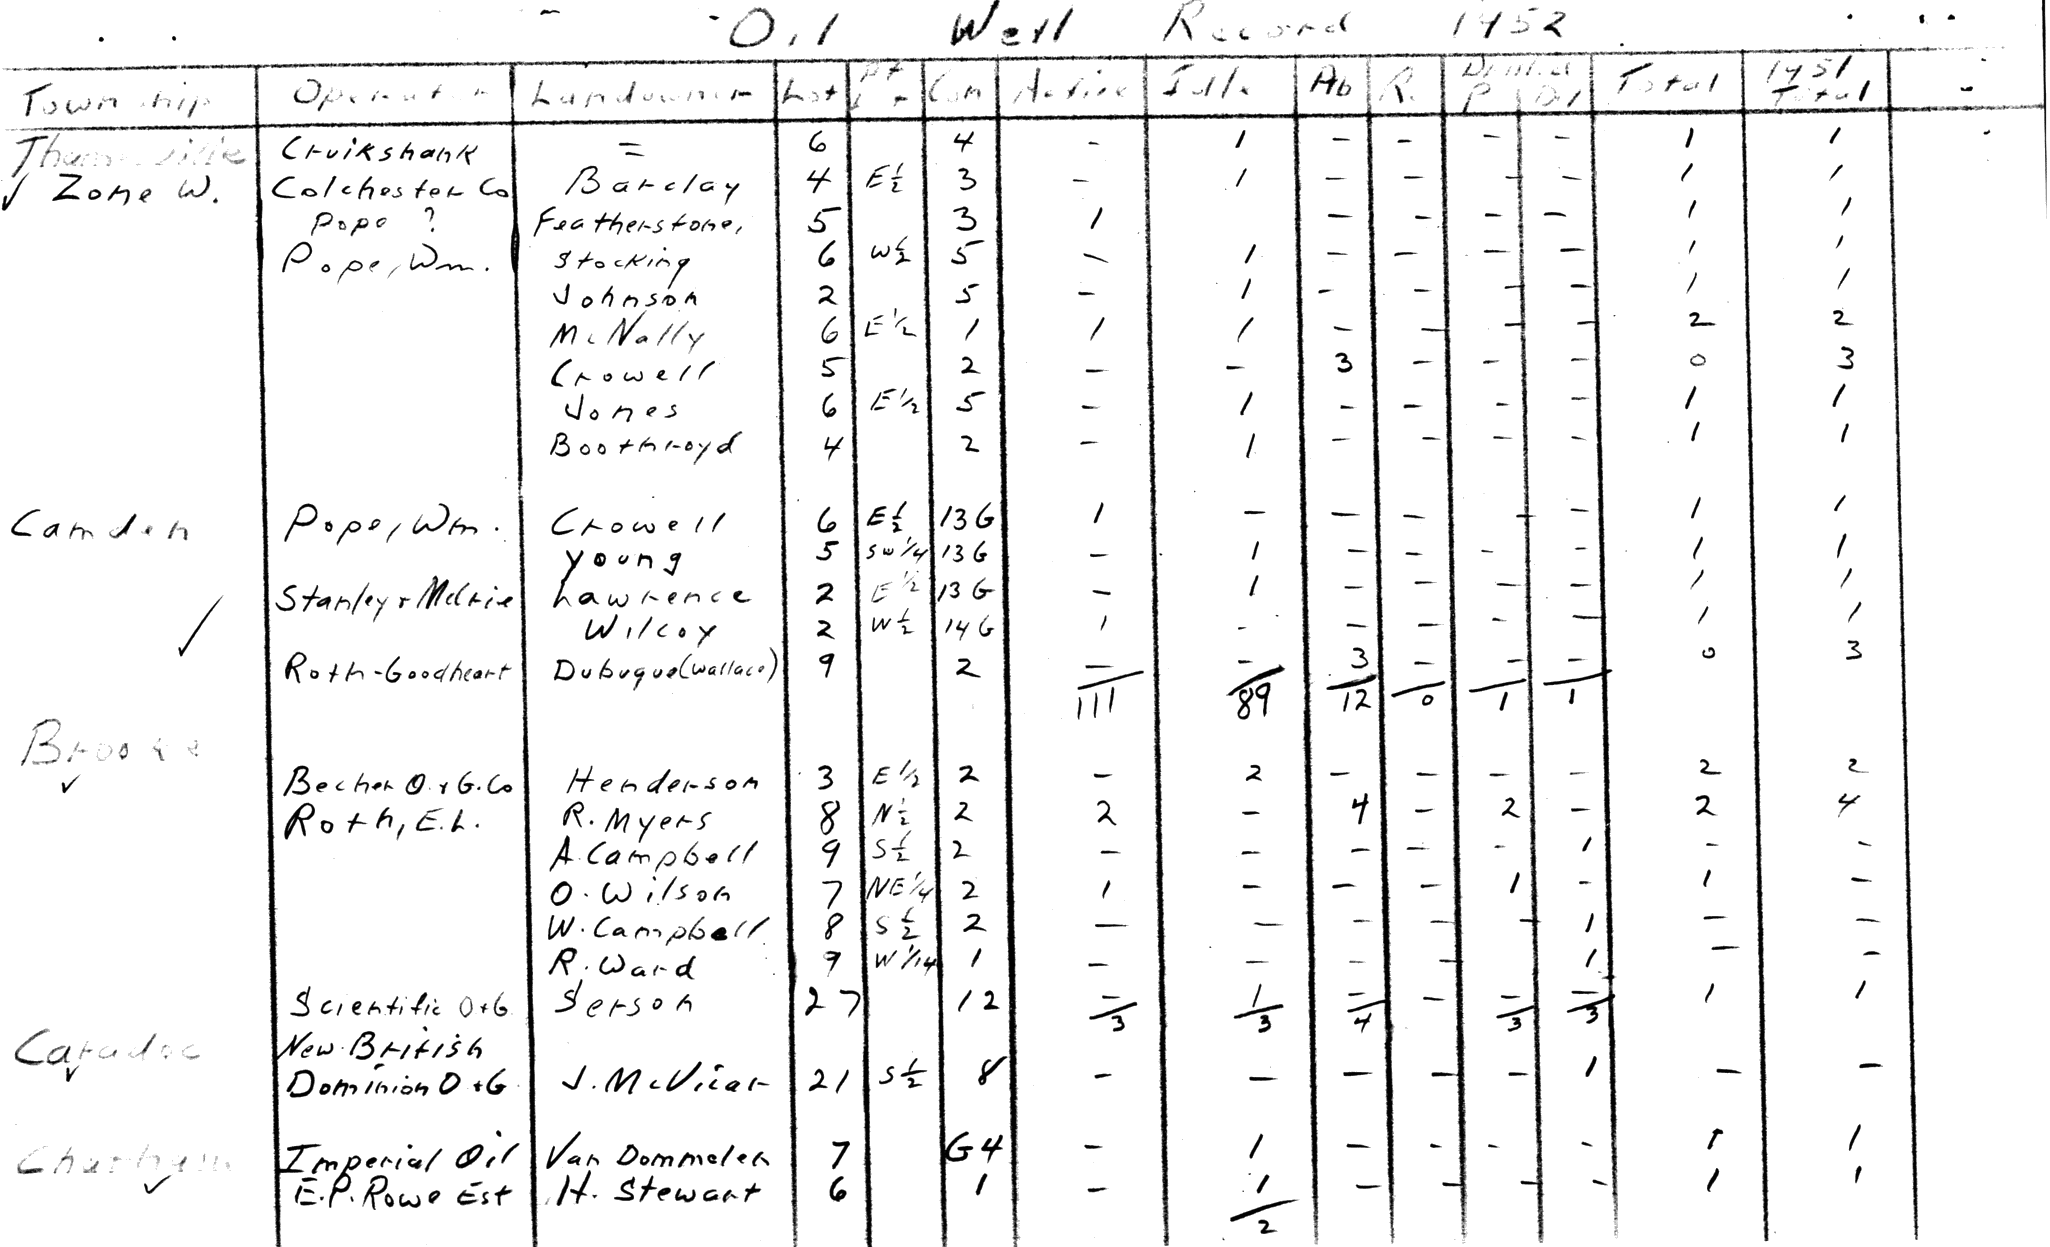 Oil Well Record 1952
Township Operator Landowner Lot Pt Lot Con Active Idle Ab R. Drilled P Dr Total 1951 Total
Thamesville Cruikshank = 6 4 - 1 - - - - 1 1
✓ Zone W. Colchester Co Barclay 4 E½ 3 - 1 - - - - 1 1
Pope ? Featherstone, 5 3 1 - - - - 1 1
Pope, Wm. Stocking 6 W½ 5 - 1 - - - - 1 1
Johnson 2 5 - 1 - - - - 1 1
McNally 6 E½ 1 1 1 - - - - 2 2
Crowell 5 2 - - 3 - - - 0 3
Jones 6 E½ 5 - 1 - - - - 1 1
Boothroyd 4 2 - 1 - - - - 1 1
Camden Pope, Wm. Crowell 6 E½ 13 G 1 - - - - - 1 1
Young 5 SW¼ 13 G - 1 - - - - 1 1
Stanley + McCrie Lawrence 2 E½ 13 G - 1 - - - - 1 1
✓ Wilcox 2 W½ 14 G 1 - - - - - 1 1
Roth-Goodheart Dubuque (Wallace) 9 2 - - 3 - - - 0 3
111 89 12 0 1 1
Brooke
✓ Becher O. + G. Co Henderson 3 E½ 2 - 2 - - - - 2 2
Roth, E.L. R. Myers 8 N½ 2 2 - 4 - 2 - 2 4
A. Campbell 9 S½ 2 - - - - - 1 - -
O. Wilson 7 NE¼ 2 1 - - - 1 - 1 -
W. Campbell 8 S½ 2 - - - - - 1 - -
R. Ward 9 W 1/14 1 - - - - - 1 - -
Scientific O+G Serson 27 12 - 1 - - - - 1 1
3 3 4 3 3
Caradoc New British
✓ Dominion O + G J. McVicar 21 S½ 8 - - - - - 1 - -
Chatham Imperial Oil Van Dommelen 7 G4 - 1 - - - - 1 1
✓ E.P. Rowe Est H. Stewart 6 1 - 1 - - - - 1 1
2